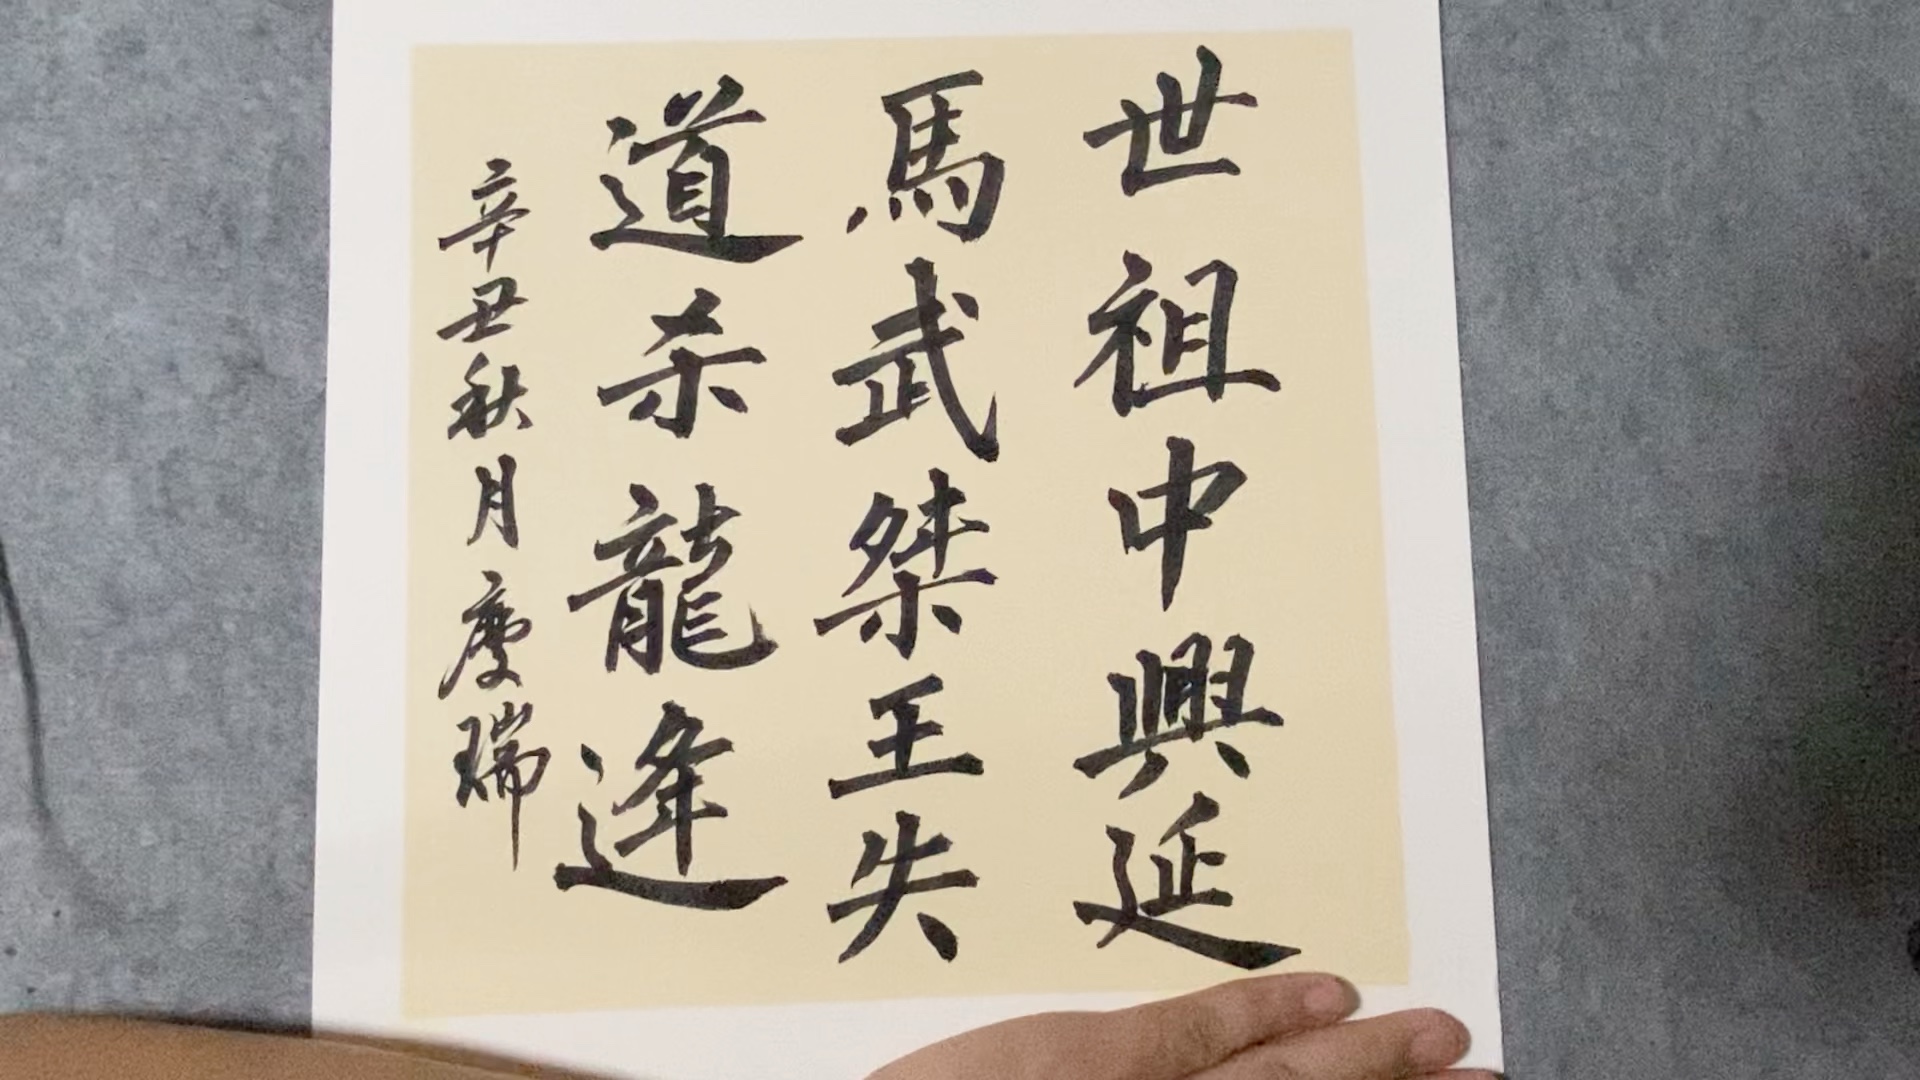 世祖中興延
馬武桀王失
道杀龍逄
辛丑秋月慶瑞